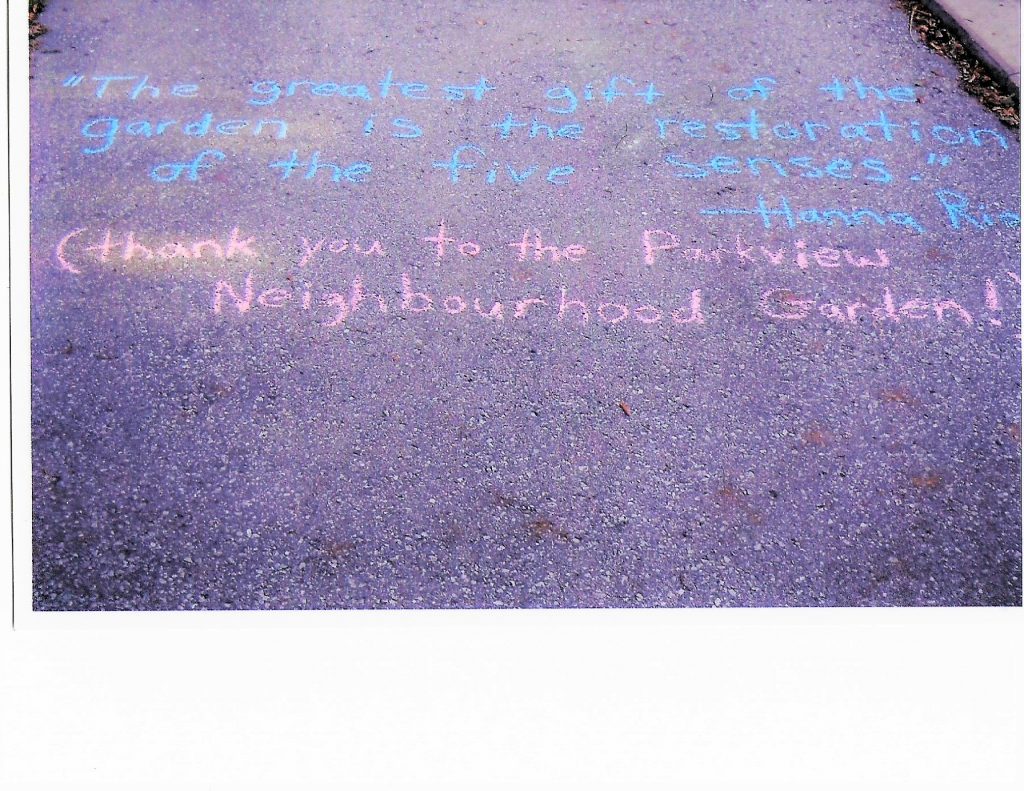 "The greatest gift of the
garden is the restoration
of the five senses."
—Hanna Rio
(thank you to the Parkview
Neighbourhood Garden!)